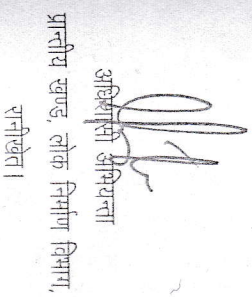 अधिशासी अभियन्ता
प्रान्तीय खण्ड, लोक निर्माण विभाग,
रानीखेत।